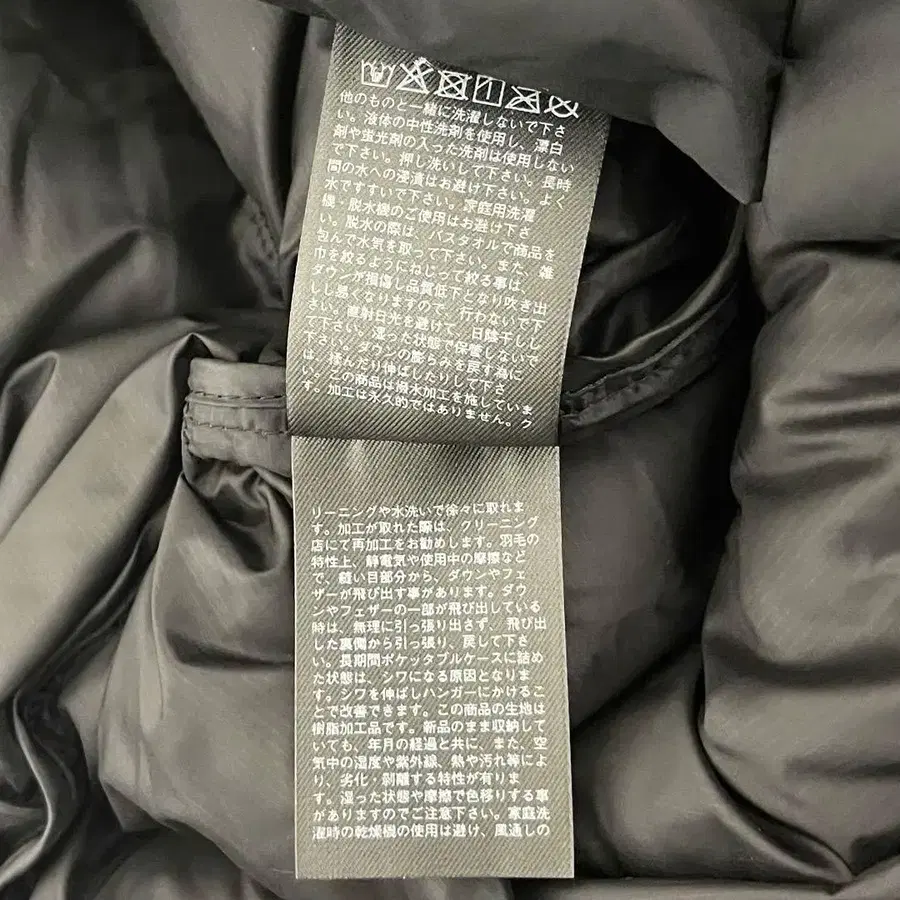 他のものと一緒に洗濯しないで下さ
い。液体の中性洗剤を使用し、漂白
剤や蛍光剤の入った洗剤は使用しない
で下さい。押し洗いして下さい。長時
間の水への浸漬はお避け下さい。よく
水ですすいで下さい。家庭用洗濯
機・脱水機のご使用はお避け下さ
い。脱水の際は、バスタオルで商品を
包んで水気を取って下さい。また、雑
巾を絞るようにねじって絞る事は
ダウンが損傷し品質低下となり吹き出
しし易くなりますので、行わないで下
さい。直射日光を避けて、日陰干しし
て下さい。湿った状態で保管しないで
下さい。ダウンの膨らみを戻す為に
は、揉んだり伸ばしたりして下さ
い。この商品は撥水加工を施していま
す。加工は永久的ではありません。ク
リーニングや水洗いで徐々に取れま
す。加工が取れた際は、クリーニング
店にて再加工をお勧めします。羽毛の
特性上、静電気や使用中の摩擦など
で、縫い目部分から、ダウンやフェ
ザーが飛び出す事があります。ダウ
ンやフェザーの一部が飛び出している
時は、無理に引っ張り出さず、飛び出
した裏側から引っ張り、戻して下さ
い。長期間ポケッタブルケースに詰め
た状態は、シワになる原因となりま
す。シワを伸ばしハンガーにかけるこ
とで改善できます。この商品の生地は
樹脂加工品です。新品のまま収納して
いても、年月の経過と共に、また、空
気中の湿度や紫外線、熱や汚れ等によ
り、劣化・剥離する特性が有りま
す。湿った状態や摩擦で色移りする事
がありますのでご注意下さい。家庭洗
濯時の乾燥機の使用は避け、風通しの